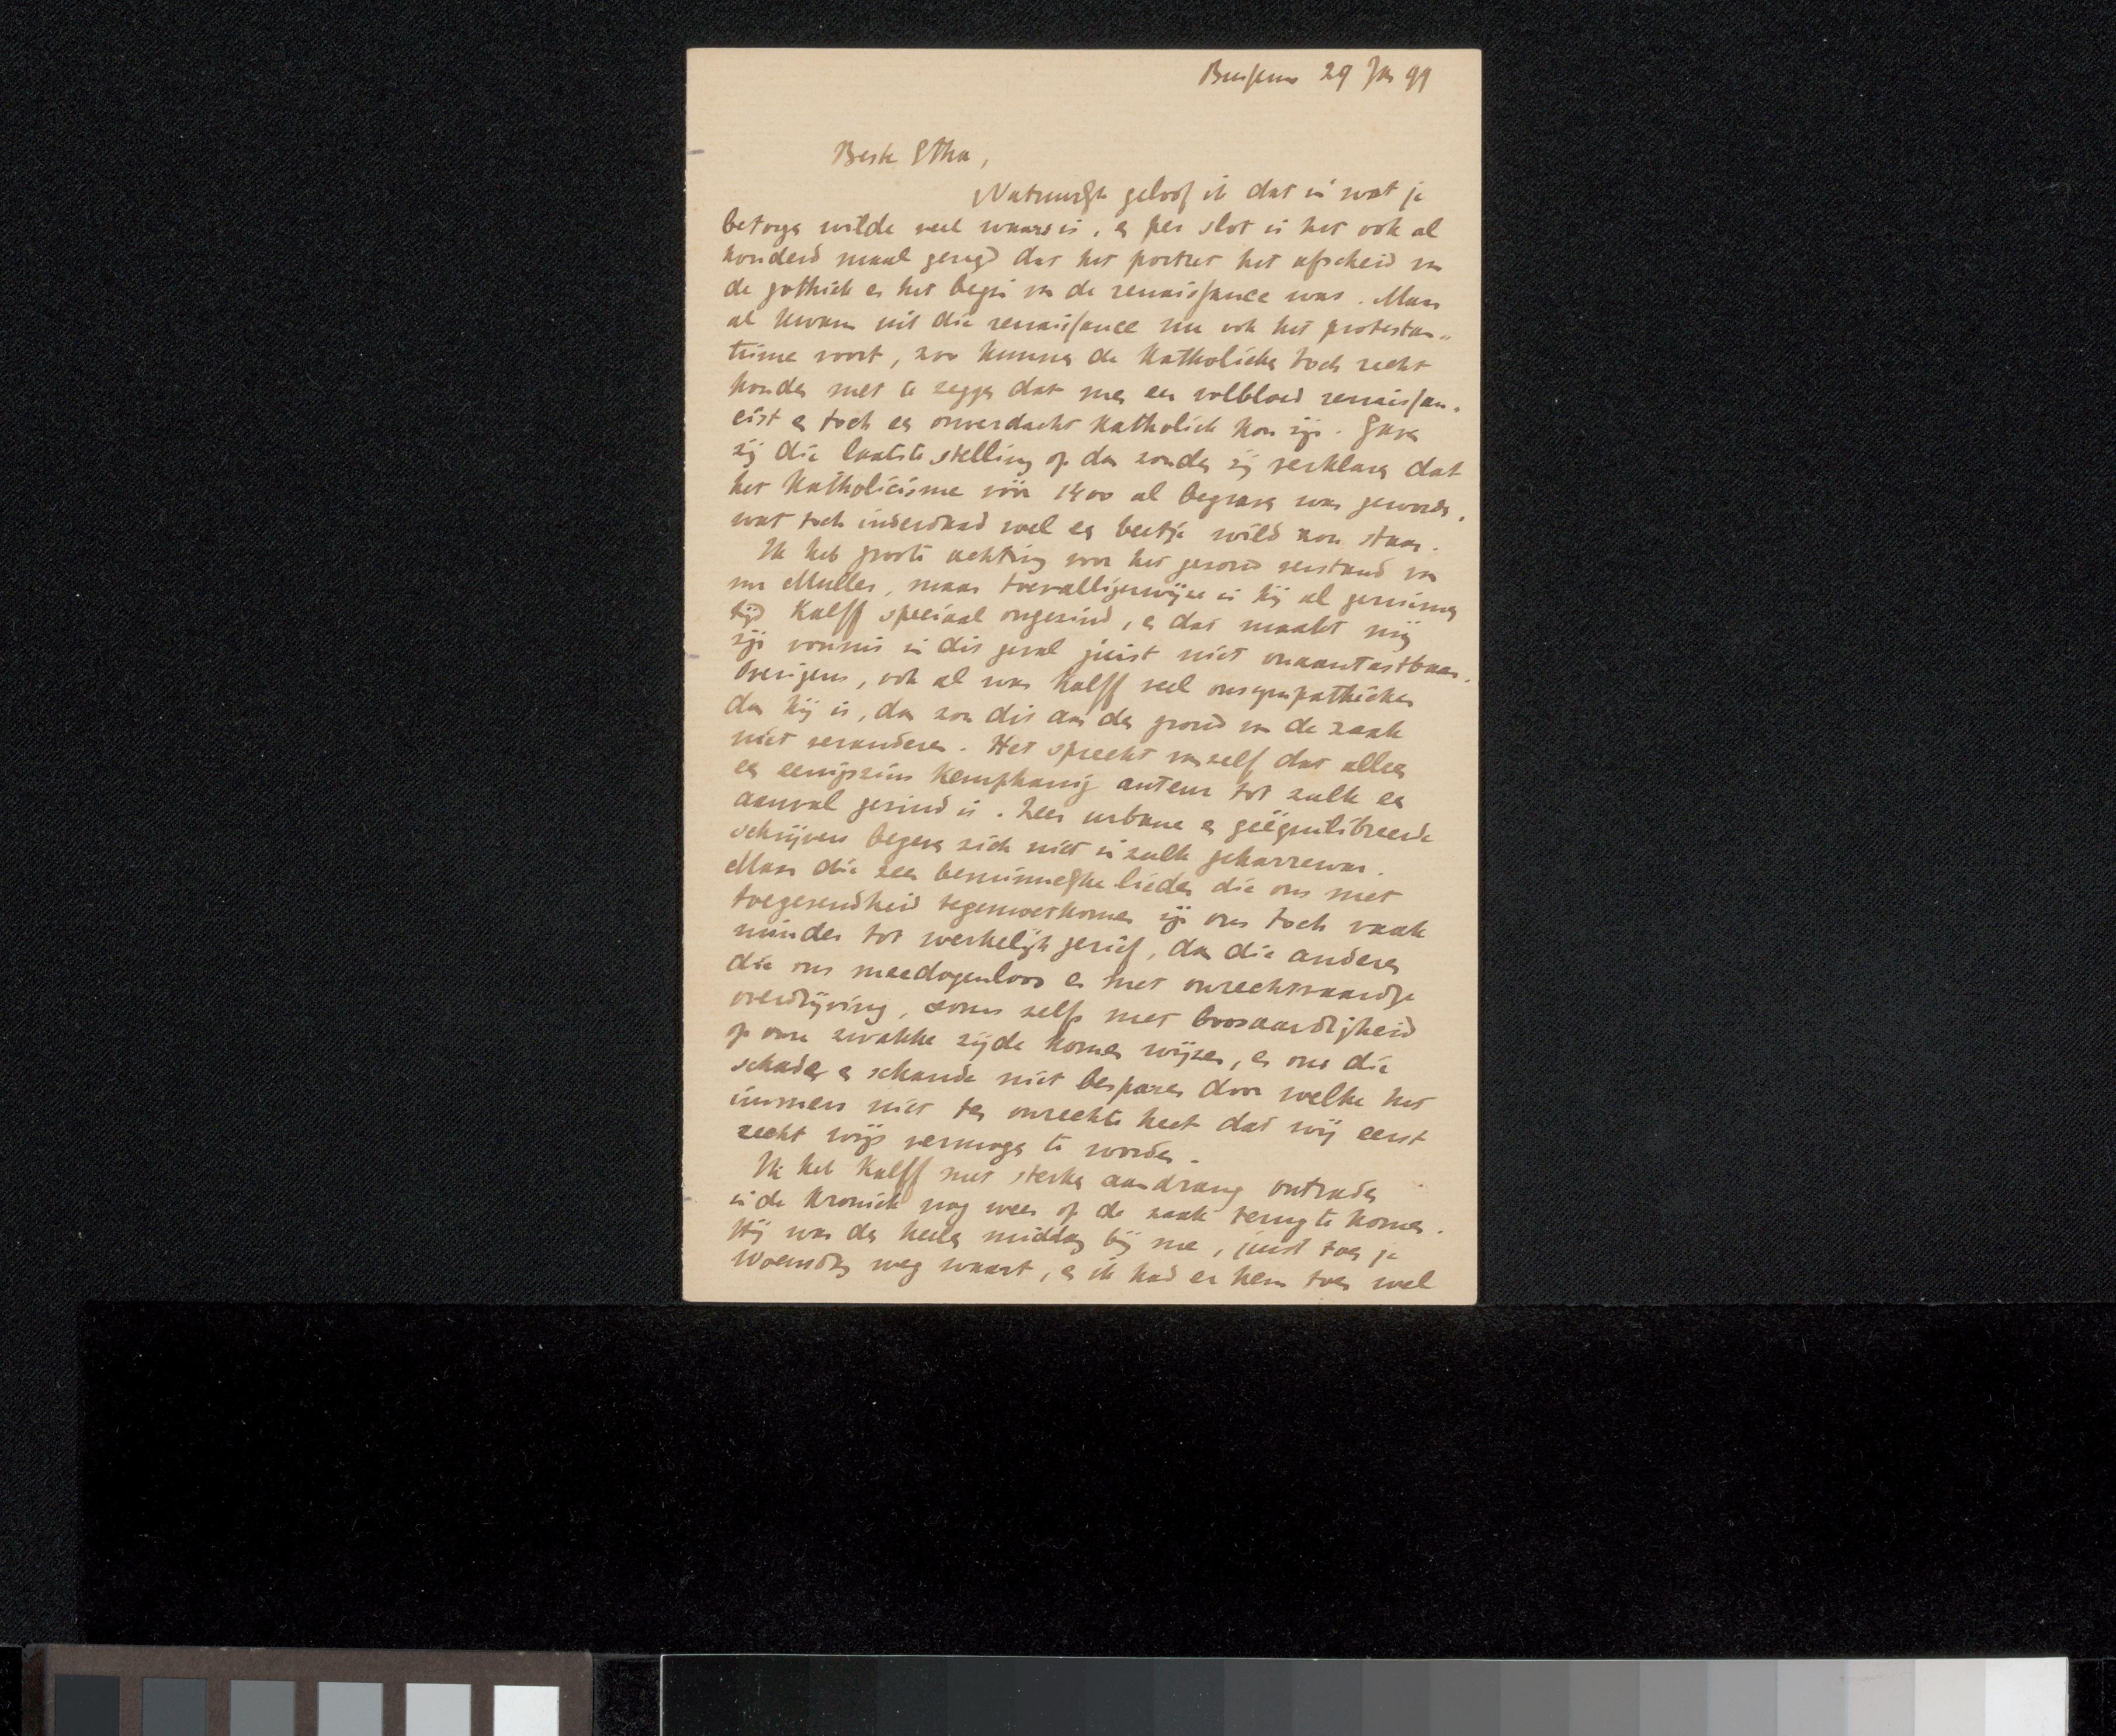 Bussum 29 Jan 99
Beste Etha,
Natuurlijk geloof ik dat in wat je
betogen wilde veel waars is, en per slot is het ook al
honderd maal gezegd dat het portret het afscheid van
de gothiek en het begin van de renaissance was. Maar
al kwam uit die renaissance nu ook het protestan-
tisme voort, zoo kunnen de Katholieken toch recht
houden met te zeggen dat men een volbloed renaissan-
cist en toch een onverdacht Katholiek kon zijn. Gaven
zij die laatste stelling op dan zouden zij verklaren dat
het Katholicisme vóór 1400 al begraven was geworden,
wat toch inderdaad wel een beetje wild zou staan.
Ik heb groote achting voor het gezond verstand van
mr Muller, maar toevalligerwijze is hij al geruimen
tijd Kalff speciaal ongezind, en dat maakt mij
zijn vonnis in dit geval juist niet onaantastbaar.
Overigens, ook al was Kalff veel onsympathieker
dan hij is, dan zou dit aan den grond van de zaak
niet veranderen. Het spreekt vanzelf dat alleen
een eenigszins kemphanig auteur tot zulk een
aanval gezind is. Zeer urbane en geëquilibreerde
schrijvers begeven zich niet in zulk geharrewar.
Maar die zeer beminnelijke lieden die ons met
toegevendheid tegemoetkomen zijn ons toch vaak
minder tot werkelijk gerief, dan die anderen
die ons meedogenloos en met onrechtvaardige
overdrijving, soms zelfs met boosaardigheid
op onze zwakke zijde komen wijzen, en ons die
schade en schande niet besparen door welke het
immers niet ten onrechte heet dat wij eerst
recht wijs vermogen te worden.
Ik heb Kalff met sterken aandrang ontraden
in de Kroniek nog weer op de zaak terug te komen.
Hij was den heelen middag bij me, juist toen je
Woensdag weg waart, en ik had er hem toen wel